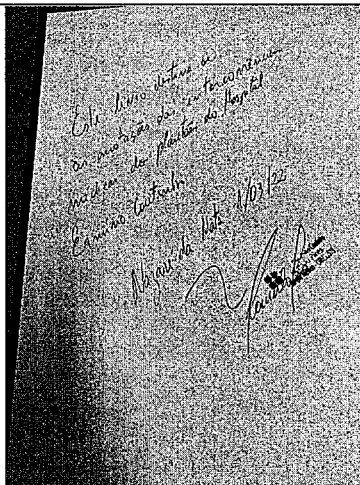 Este livro destina-se
as anotações das intercorrencia
médicas do plantão do Hospital
Ermírio Coutinho
Nazaré da Mata 1/03/22